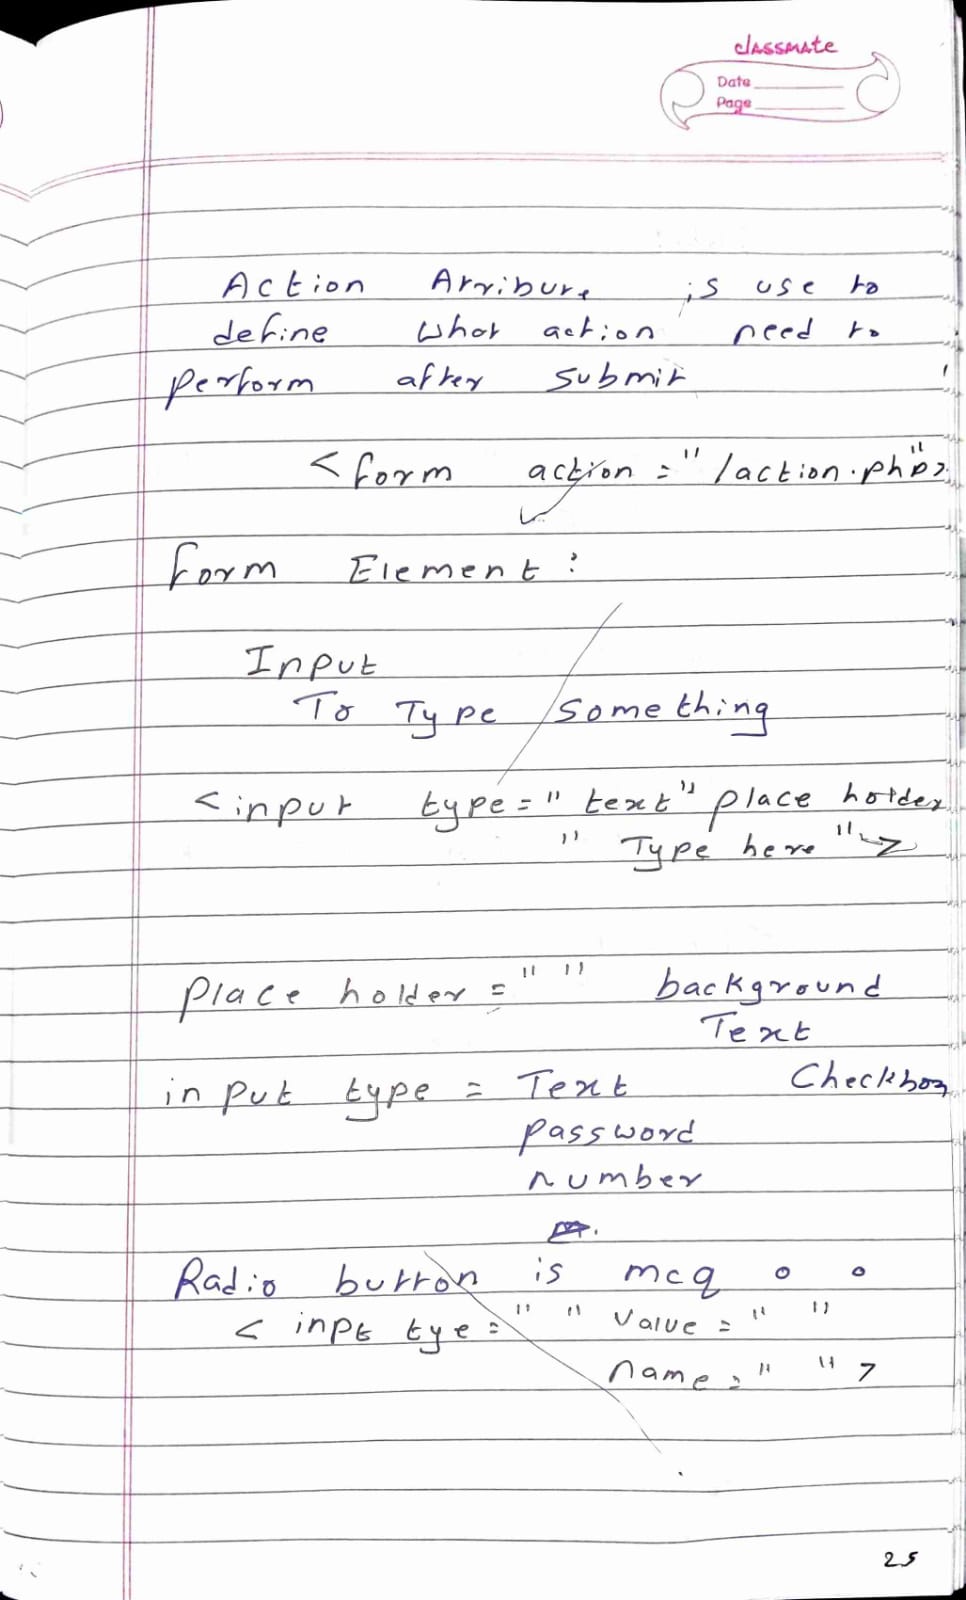 classmate
Date
Page
Action Arribure is use to
define what action need to
perform after submit
<form action="/action.php">
form Element:
Input
To Type something
<input type="text" place holder
"Type here">
place holder = " " background
Text
input type = Text Checkbox
password
number
Radio button is mcq o o
< inpt tye = " " value = " "
name = " " >
25